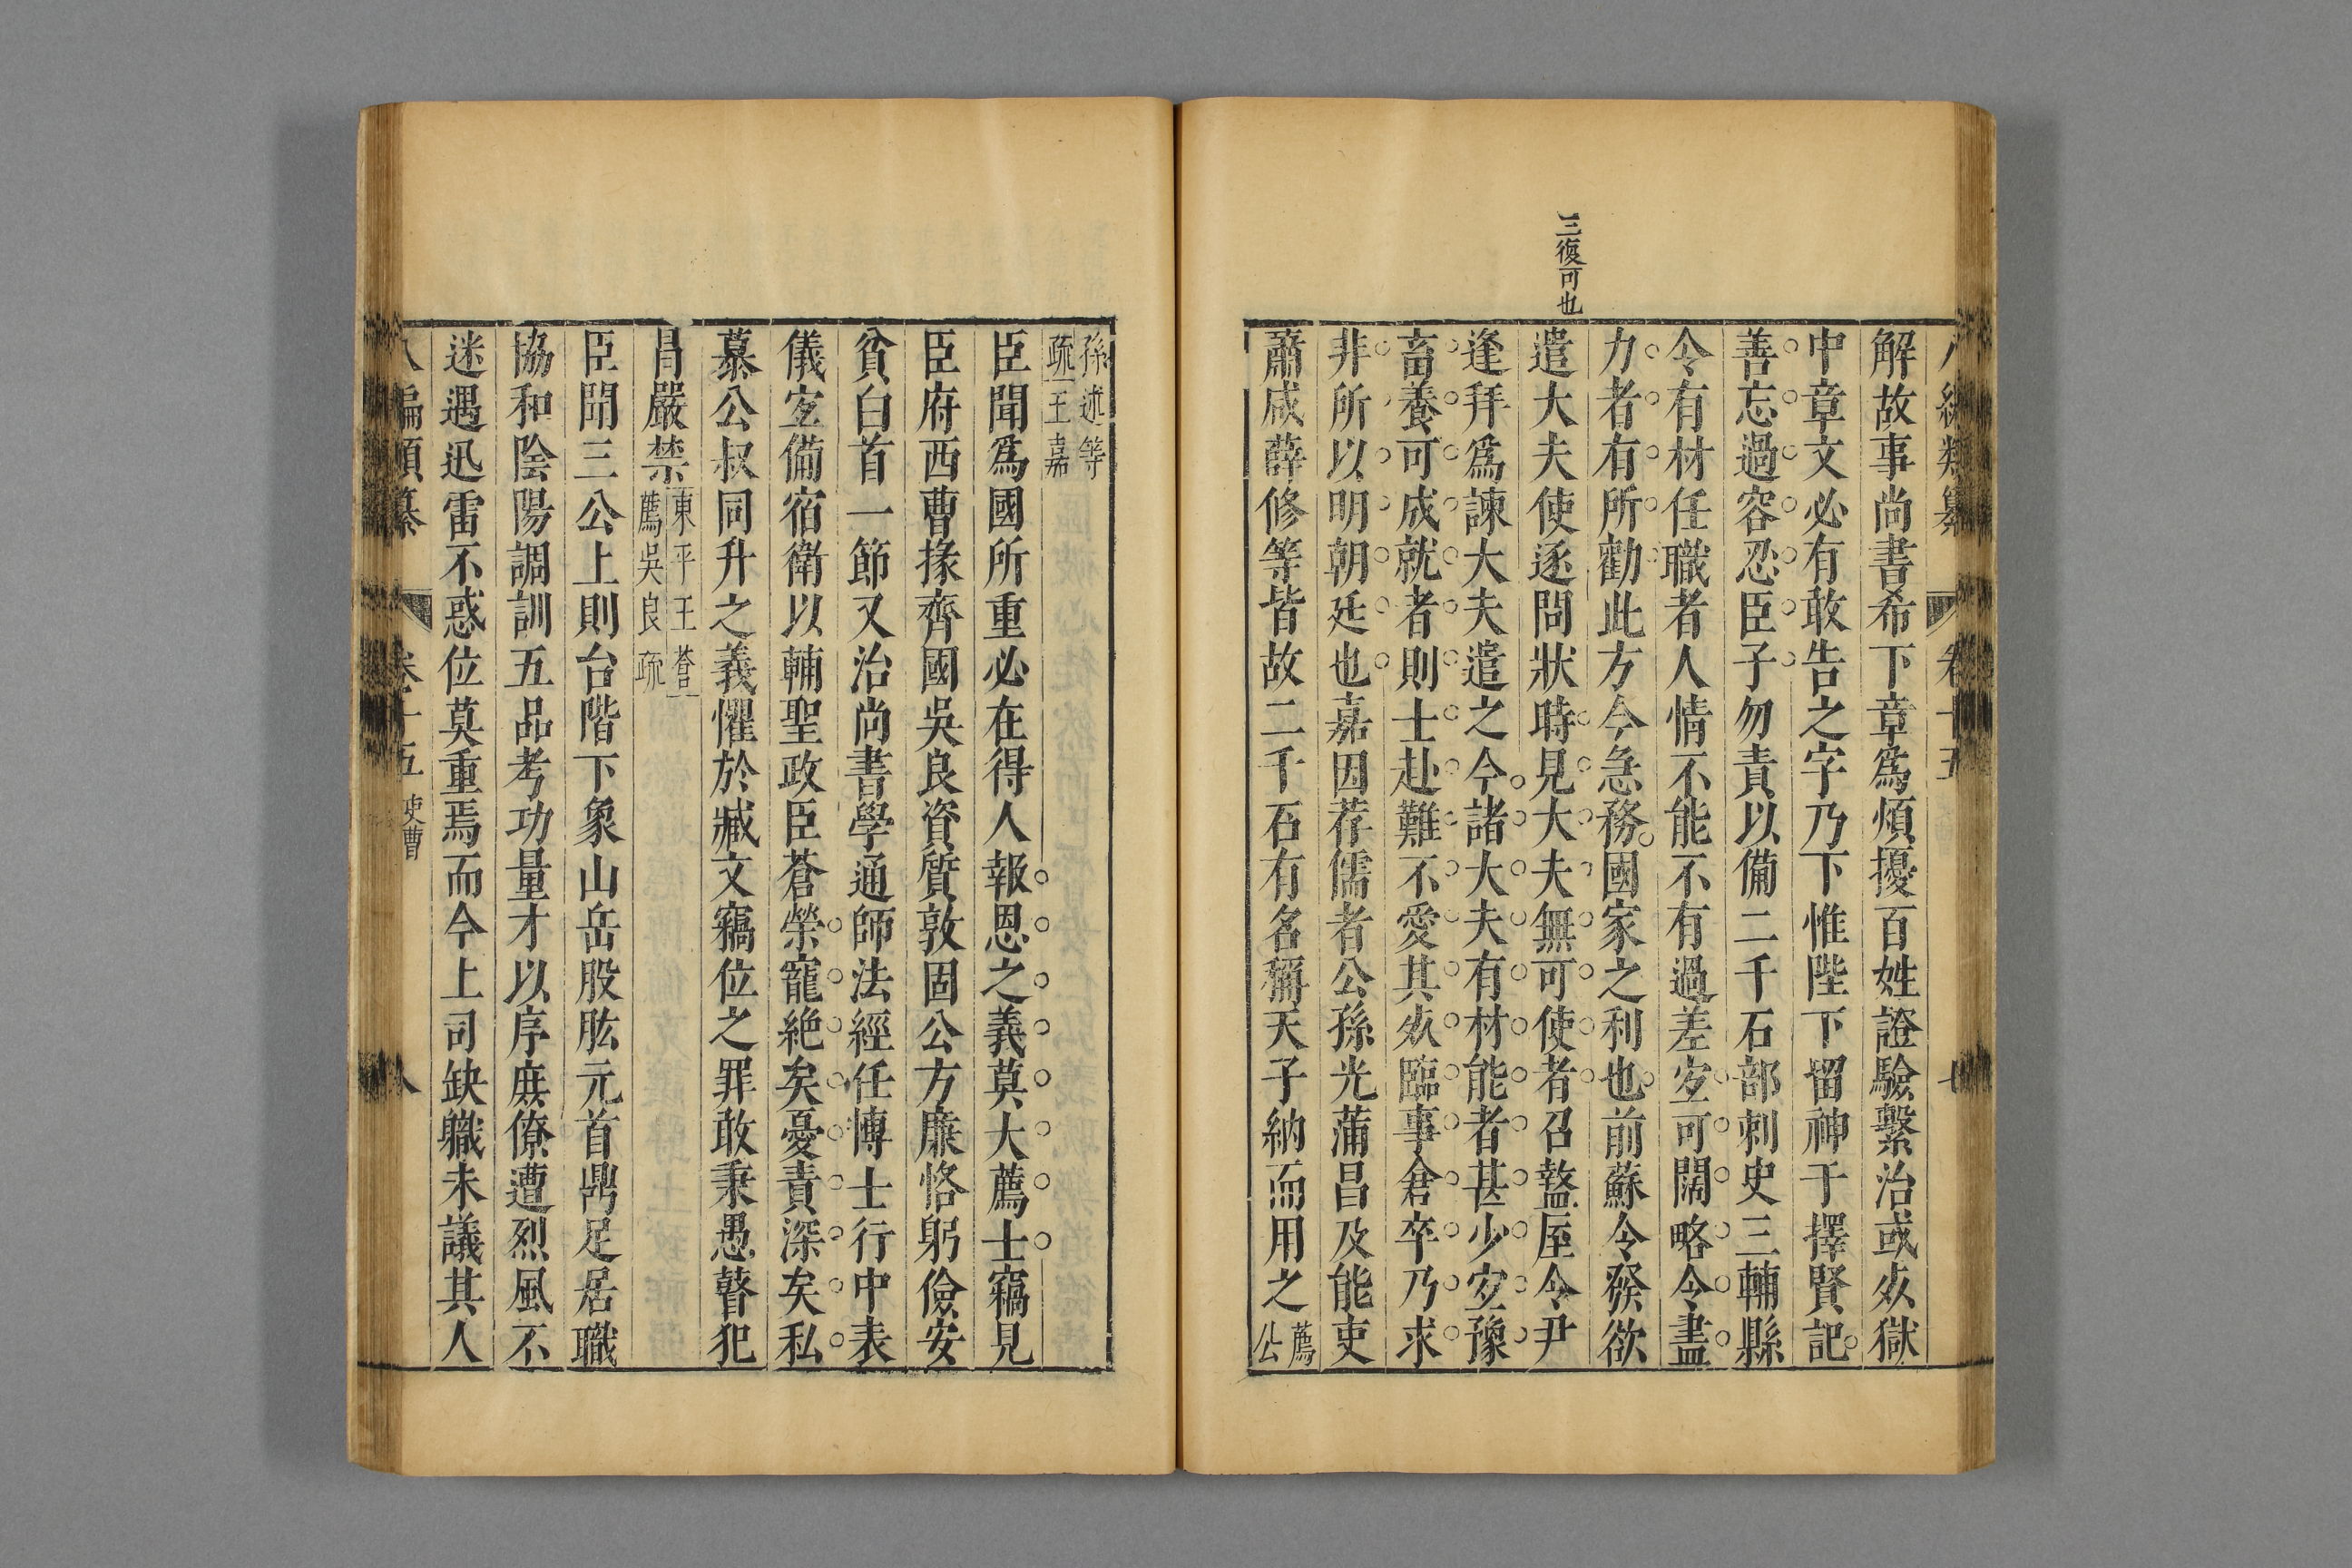 三復可也
解故事尚書希下章爲煩擾百姓證驗繫治或死獄
中章文必有敢告之字乃下惟陛下留神于擇賢記
善忘過容忍臣子勿責以備二千石部刺史三輔縣
令有材任職者人情不能不有過差宜可闊略令盡
力者有所勸此方今急務國家之利也前蘇令發欲
遣大夫使逐問狀時見大夫無可使者召盩厔令尹
逢拜爲諫大夫遣之今諸大夫有材能者甚少宜豫
畜養可成就者則士赴難不愛其死臨事倉卒乃求
非所以明朝廷也嘉因荐儒者公孫光蒲昌及能吏
蕭咸薛修等皆故二千石有名稱天子納而用之薦公
孫述等疏王嘉
臣聞爲國所重必在得人報恩之義莫大薦士竊見
臣府西曹掾齊國吳良資質敦固公方廉恪躬儉安
貧白首一節又治尚書學通師法經任博士行中表
儀宜備宿衛以輔聖政臣蒼榮寵絶矣憂責深矣私
慕公叔同升之義懼於臧文竊位之罪敢秉愚瞽犯
冒嚴禁東平王蒼薦吳良疏
臣聞三公上則台階下象山岳股肱元首鼎足居職
協和陰陽調訓五品考功量才以序庶僚遭烈風不
迷遇迅雷不惑位莫重焉而今上司缺職未議其人
八編類纂 卷十五 吏曹 八